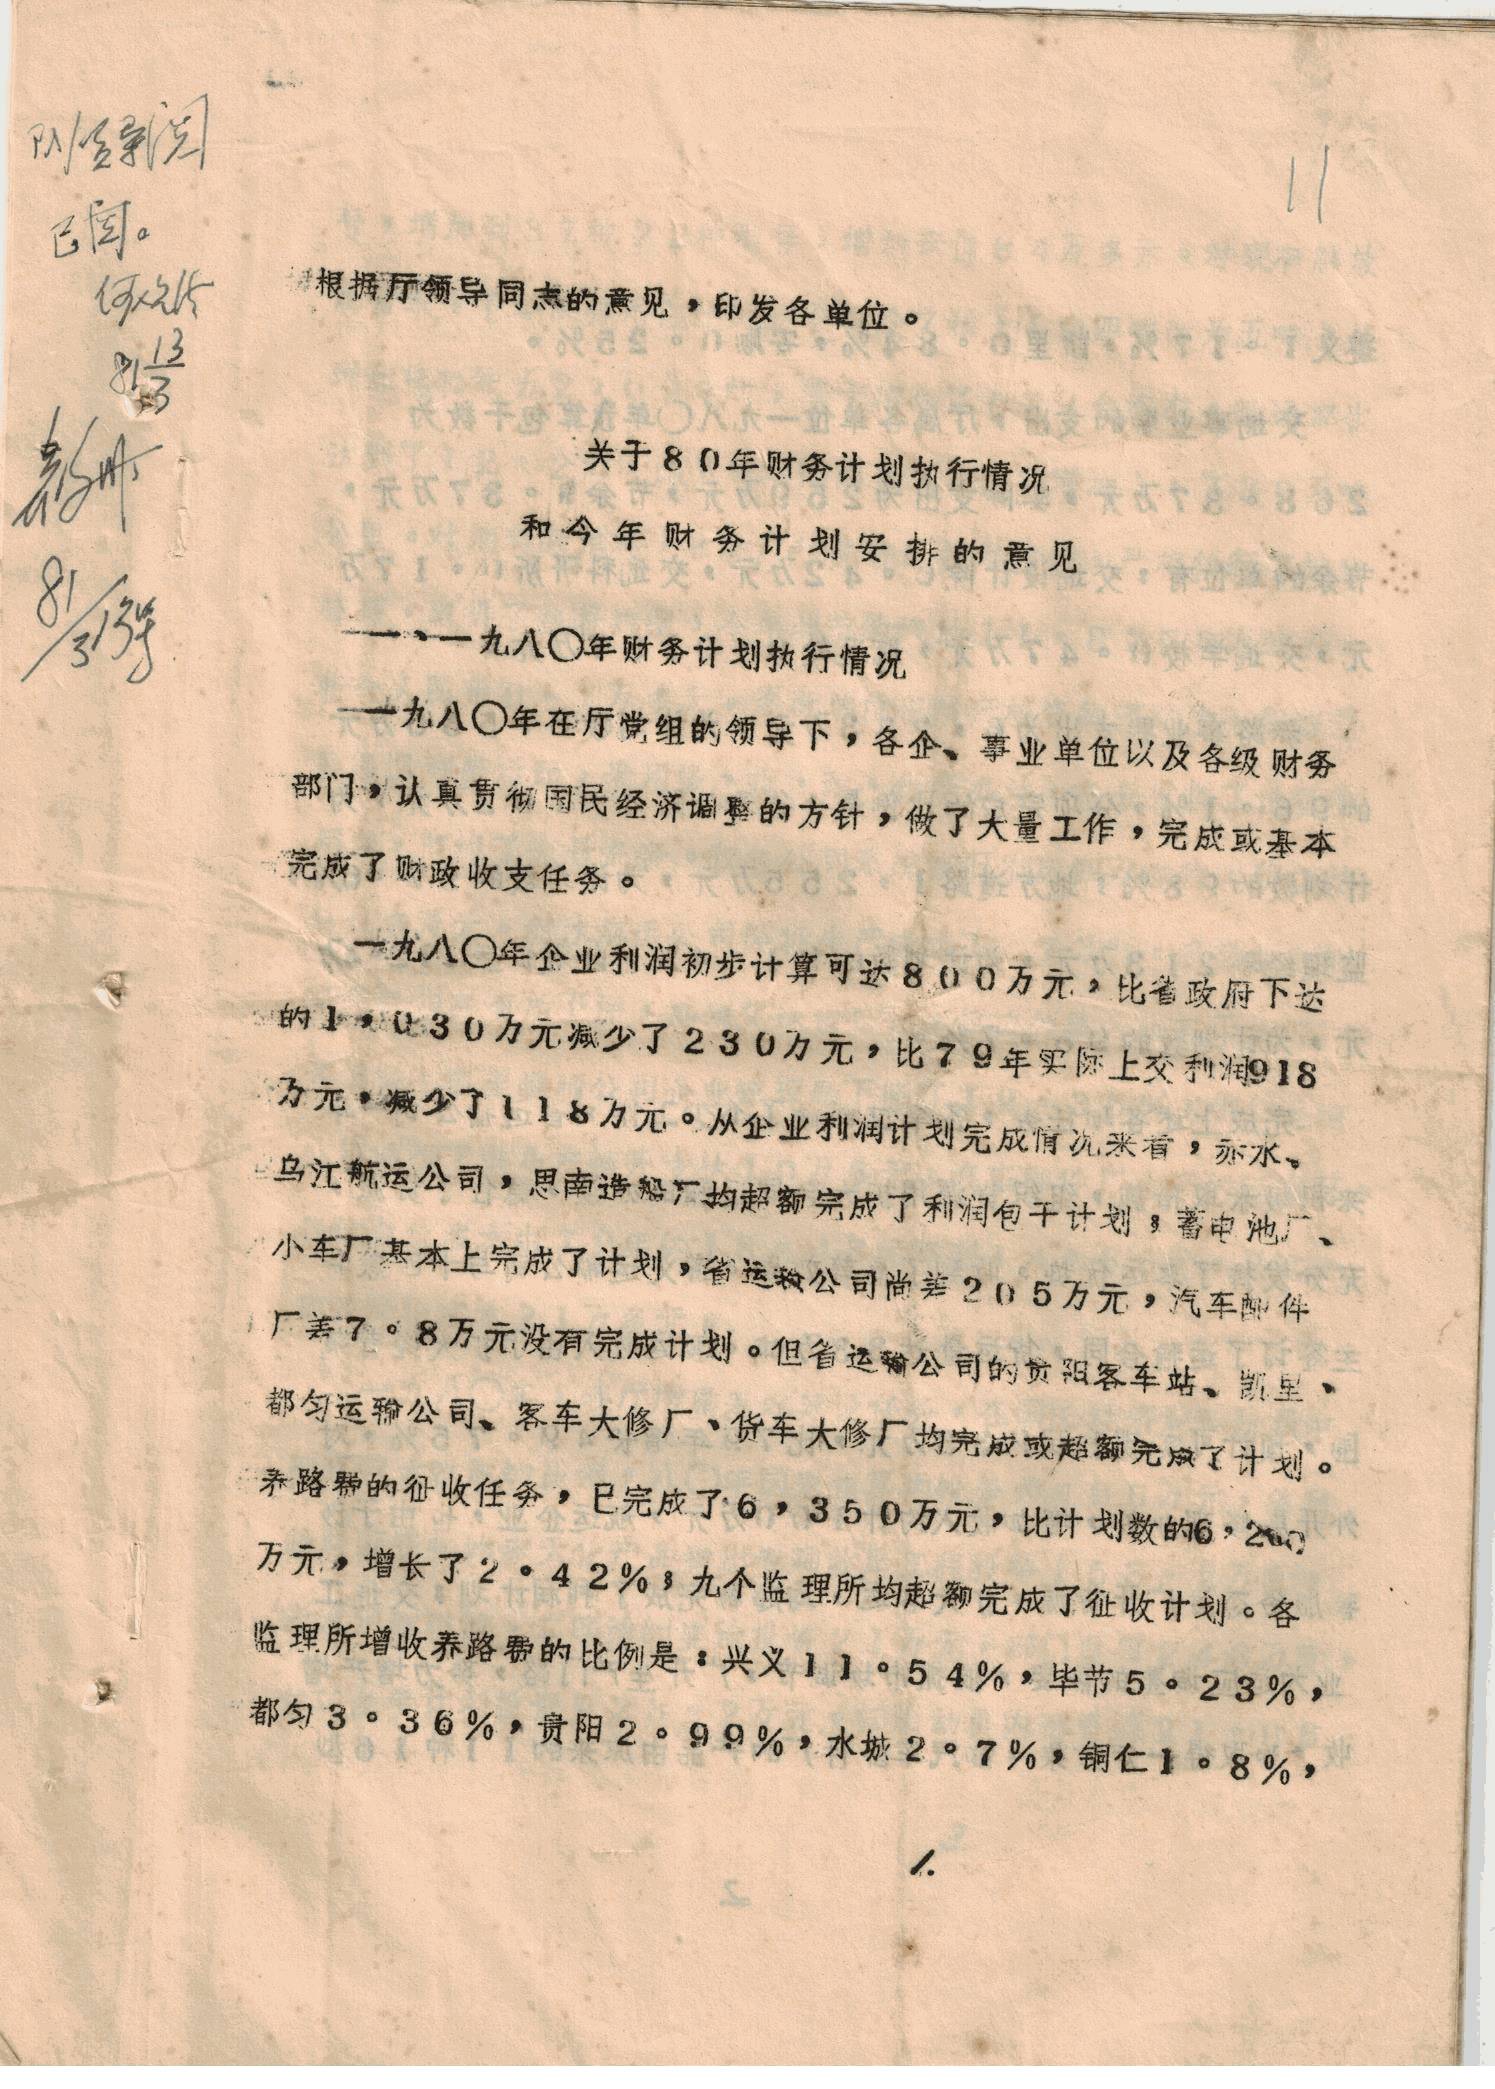 已阅。
81 13/3
81
11
根据厅领导同志的意见，印发各单位。
关于80年财务计划执行情况
和今年财务计划安排的意见
一、一九八〇年财务计划执行情况
一九八〇年在厅党组的领导下，各企、事业单位以及各级财务
部门，认真贯彻国民经济调整的方针，做了大量工作，完成或基本
完成了财政收支任务。
一九八〇年企业利润初步计算可达800万元，比省政府下达
的1，030万元减少了230万元，比79年实际上交利润918
万元，减少了118万元。从企业利润计划完成情况来看，赤水、
乌江航运公司，思南造船厂均超额完成了利润包干计划；蓄电池厂、
小车厂基本上完成了计划，省运输公司尚差205万元，汽车配件
厂差7。8万元没有完成计划。但省运输公司的贵阳客车站、凯里、
都匀运输公司、客车大修厂、货车大修厂均完成或超额完成了计划。
养路费的征收任务，已完成了6，350万元，比计划数的6，200
万元，增长了2。42%；九个监理所均超额完成了征收计划。各
监理所增收养路费的比例是：兴义11。54%，毕节5。23%，
都匀3。36%，贵阳2。99%，水城2。7%，铜仁1。8%，
1.